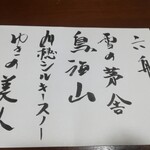 六舟
雪の茅舎
鳥海山
刈穂シルキースノー
ゆきの美人